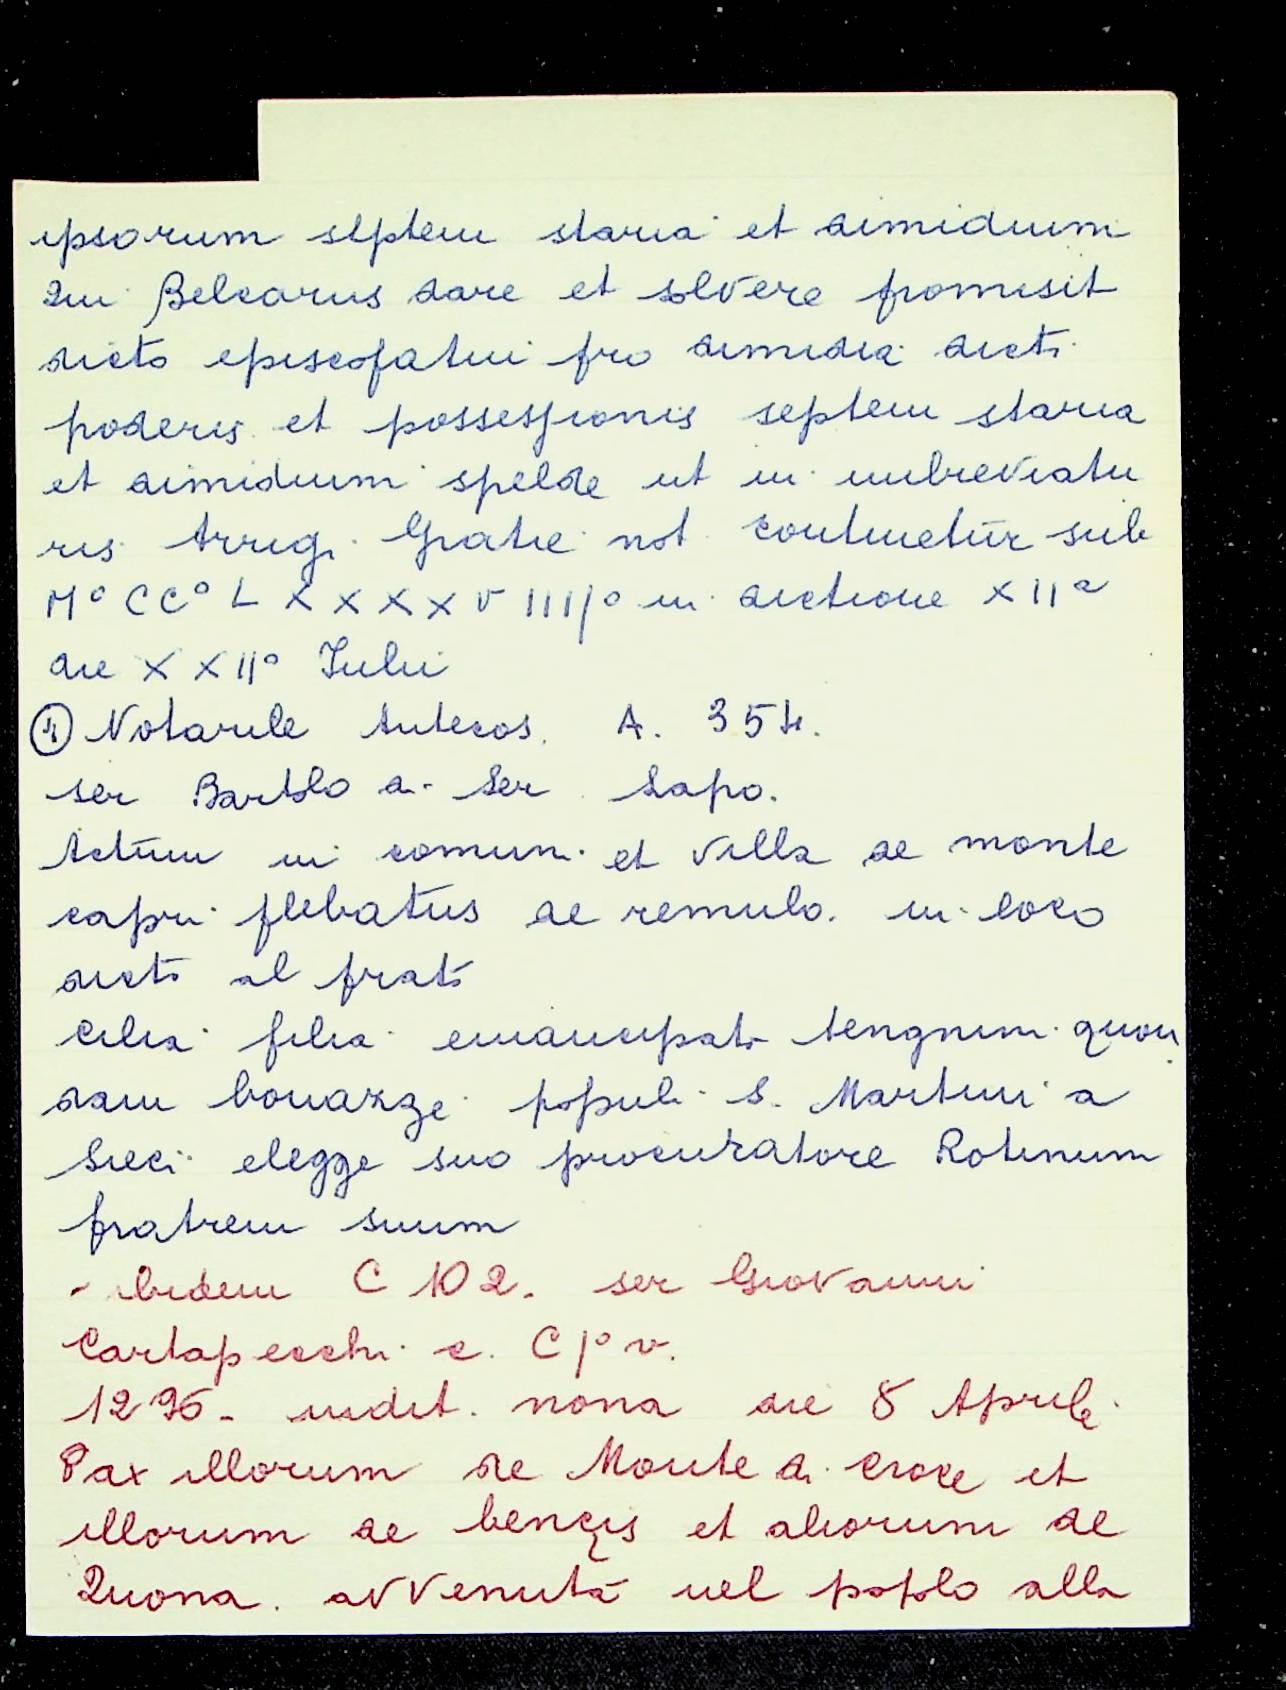 ipsorum septem staria et dimidium
Qui Belcarus dare et solvere promisit
dicto episcopatui pro dimidia dicti
poderis et possessionis septem staria
et dimidium spelde ut in imbreviatu
ris Arrigi Gratie not. continetur sub
M° CC° L X X X X V IIII° in dictione XIIa
die X X II° Iulii
④ Notarile Antecos. A. 354.
ser Bartolo di Ser Lapo.
Actum in comuni et villa de monte
capri plebatus de remulo. in loco
dicto al prato
Cilia filia emancipata tengnini quon
dam bonazze populi S. Martini a
Sieci elegge suo procuratore Rotinum
fratrem suum
- ibidem C 102. ser Giovanni
Cartapecchi c. C 1° v.
1296 - indit. nona die 8 Aprile.
Pax illorum de Monte di Croce et
illorum de bençis et aliorum de
Quona. avvenuta nel popolo alla